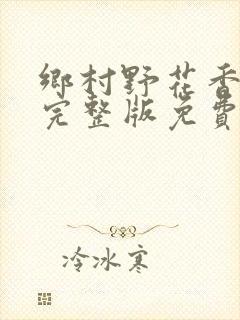 鄉村野花香
完整版免費
冷冰寒